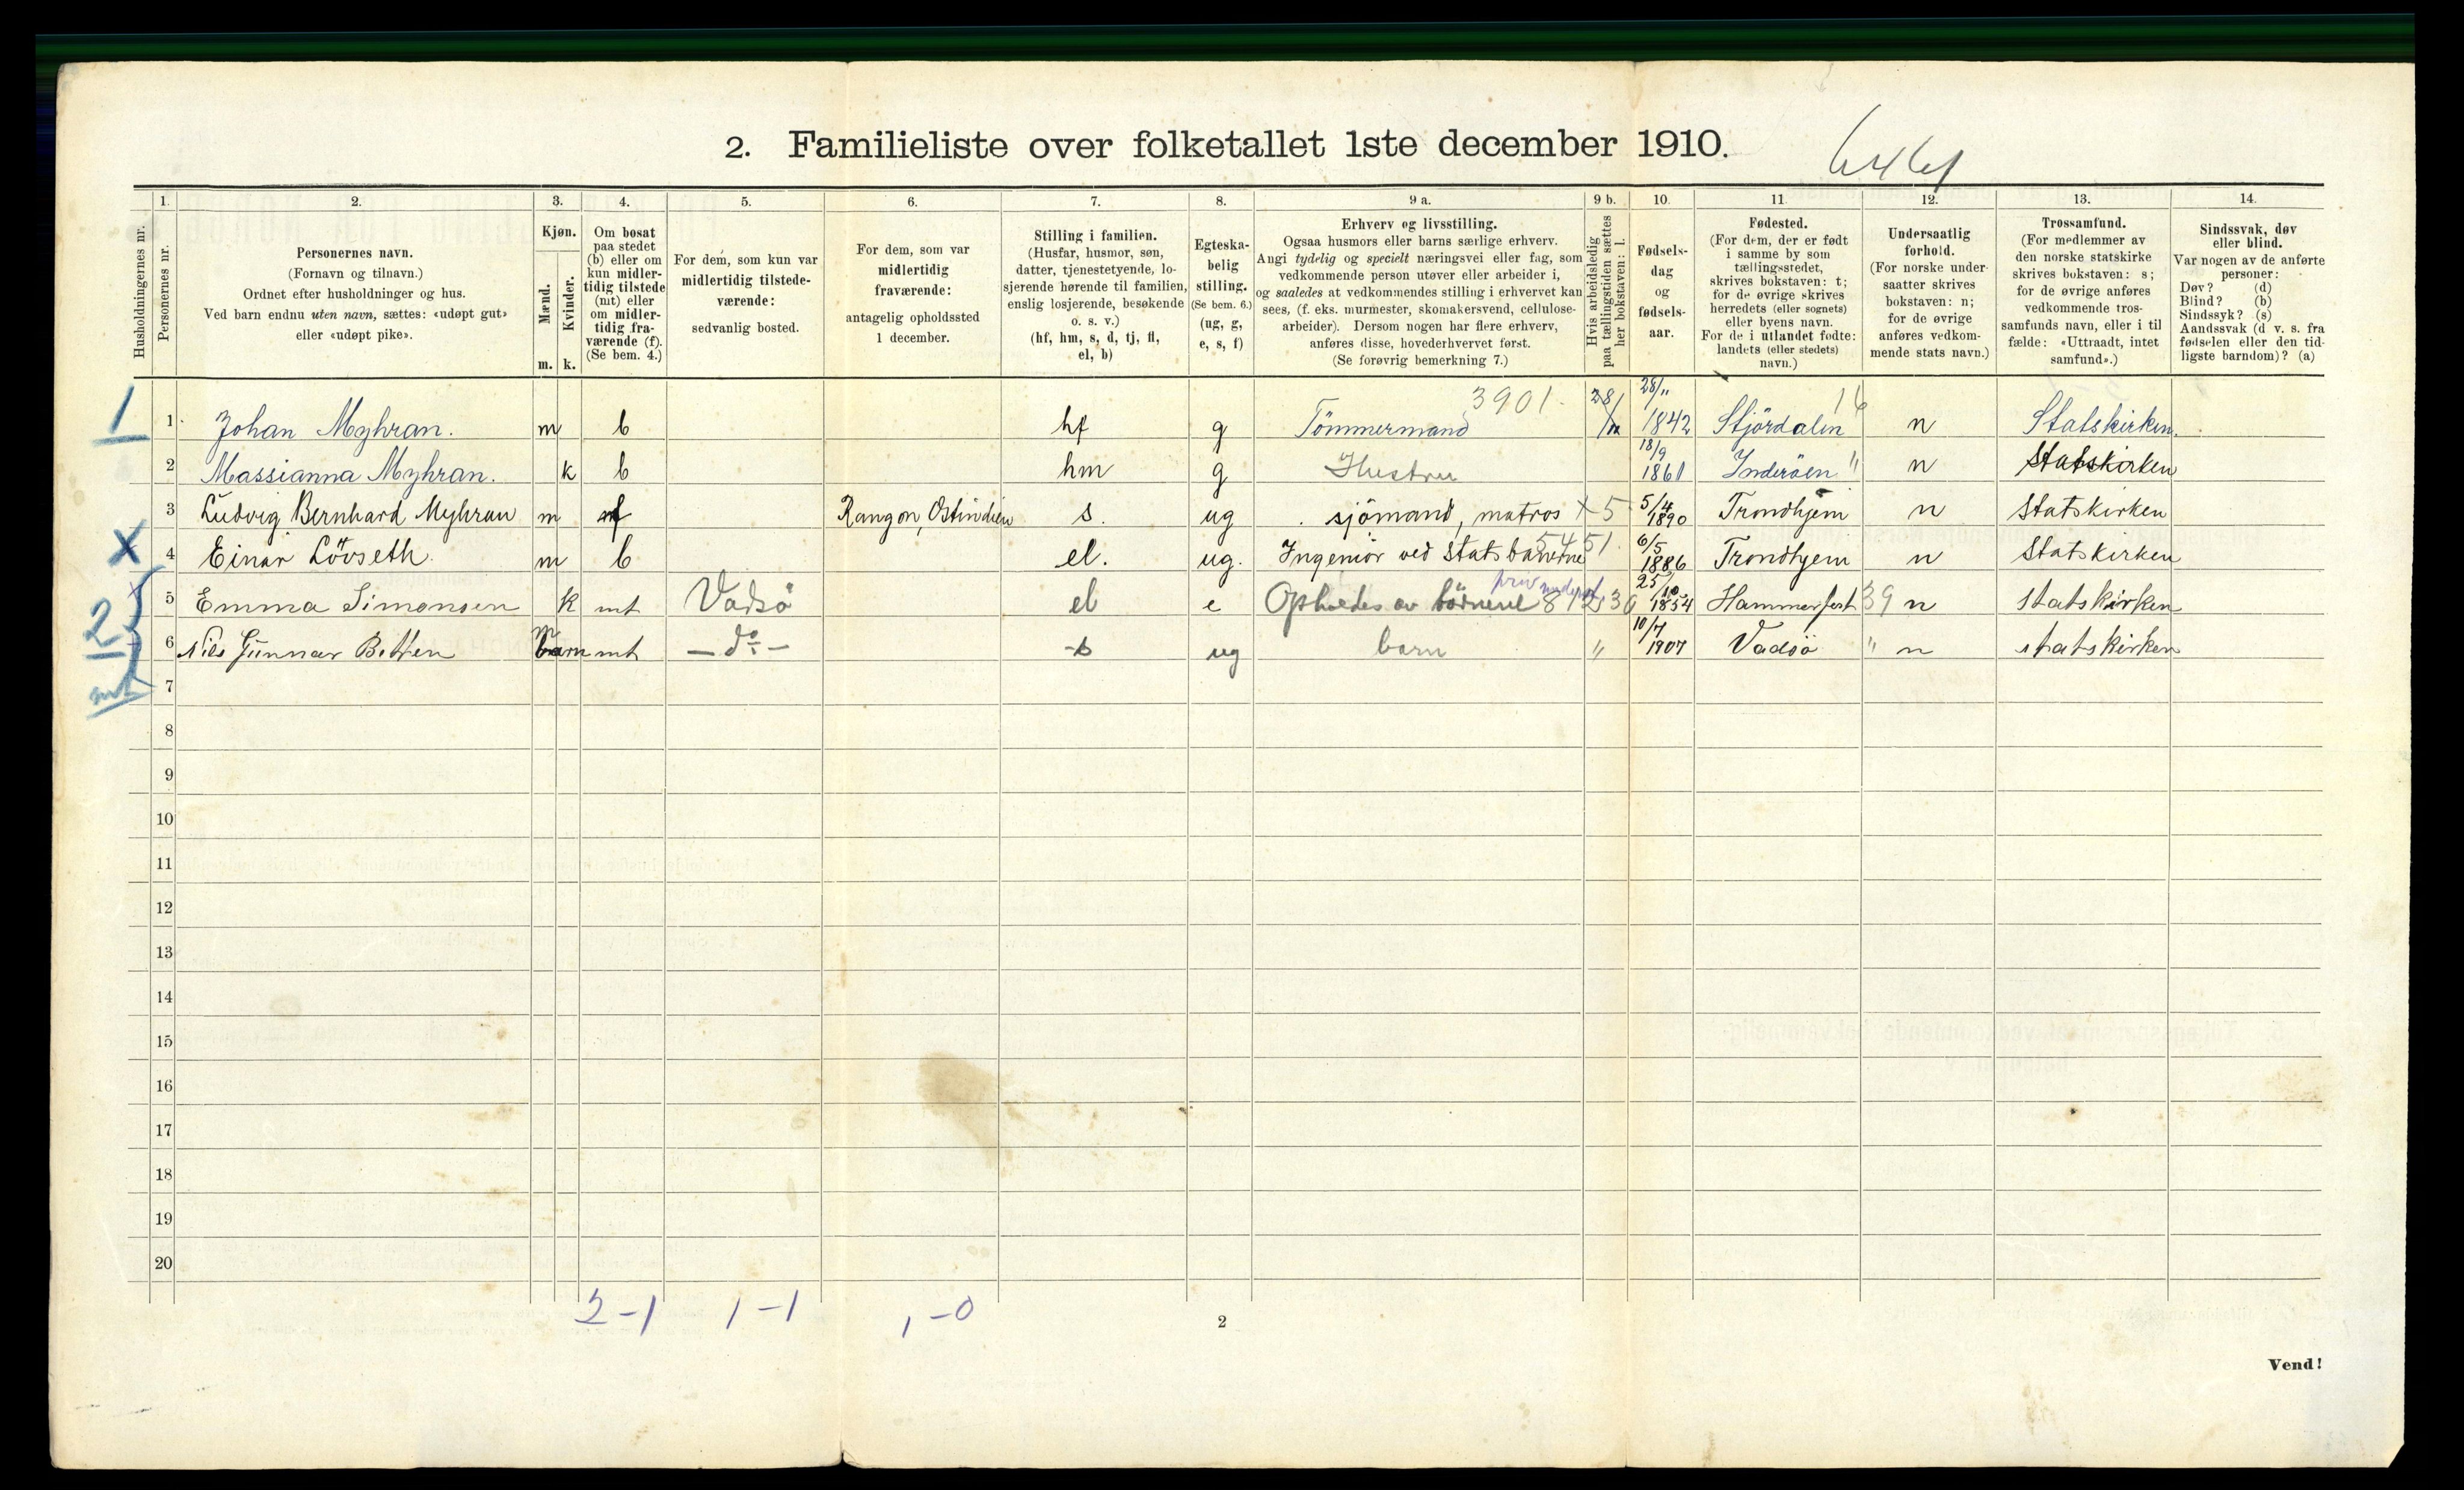 2. Familieliste over folketallet 1ste december 1910.
6461
Husholdningernes nr.
1. Personernes nr.
2. Personernes navn. (Fornavn og tilnavn.) Ordnet efter husholdninger og hus. Ved barn endnu uten navn, sættes: «udøpt gut» eller «udøpt pike».
3. Kjøn. Mænd. m. Kvinder. k.
4. Om bosat paa stedet (b) eller om kun midlertidig tilstede (mt) eller om midlertidig fraværende (f). (Se bem. 4.)
5. For dem, som kun var midlertidig tilstedeværende: sedvanlig bosted.
6. For dem, som var midlertidig fraværende: antagelig opholdssted 1 december.
7. Stilling i familien. (Husfar, husmor, søn, datter, tjenestetyende, losjerende hørende til familien, enslig losjerende, besøkende o. s. v.) (hf, hm, s, d, tj, fl, el, b)
8. Egteskabelig stilling. (Se bem. 6.) (ug, g, e, s, f)
9 a. Erhverv og livsstilling. Ogsaa husmors eller barns særlige erhverv. Angi tydelig og specielt næringsvei eller fag, som vedkommende person utøver eller arbeider i, og saaledes at vedkommendes stilling i erhvervet kan sees, (f. eks. murmester, skomakersvend, cellulosearbeider). Dersom nogen har flere erhverv, anføres disse, hovederhvervet først. (Se forøvrig bemerkning 7.)
9 b. Hvis arbeidsledig paa tællingstiden sættes her bokstaven: l.
10. Fødselsdag og fødselsaar.
11. Fødested. (For dem, der er født i samme by som tællingsstedet, skrives bokstaven: t; for de øvrige skrives herredets (eller sognets) eller byens navn. For de i utlandet fødte: landets (eller stedets) navn.)
12. Undersaatlig forhold. (For norske undersaatter skrives bokstaven: n; for de øvrige anføres vedkommende stats navn.)
13. Trossamfund. (For medlemmer av den norske statskirke skrives bokstaven: s; for de øvrige anføres vedkommende trossamfunds navn, eller i tilfælde: «Uttraadt, intet samfund».)
14. Sindssvak, døv eller blind. Var nogen av de anførte personer: Døv? (d) Blind? (b) Sindssyk? (s) Aandssvak (d v. s. fra fødselen eller den tidligste barndom)? (a)
1 1 Johan Myhran. m b hf g Tömmermand 3901. 28/11 1842 Stjördalen 16 n Statskirken.
2 Massianna Myhran. k b hm g Hustru 18/9 1861 Inderöen " n Statskirken
3 Ludvig Bernhard Myhran m f Rangon, Ostindien s. ug . sjömand, matros x 5 5/4 1890 Trondhjem n Statskirken
x 4 Einar Lövseth. m b el. ug. Ingeniör ved Statsbanerne 5451. 6/5 1886 Trondhjem n Statskirken
2 5 Emma Simonsen k mt Vadsö el e Opholdes av börnene 25/10 1854 Hammerfest 39 n statskirken
mt 6 Nils Gunnar Betten m barn mt - do - s ug barn " 10/7 1907 Vadsö " n statskirken
7
8
9
10
11
12
13
14
15
16
17
18
19
20
2-1 1-1 1-0
2
Vend!